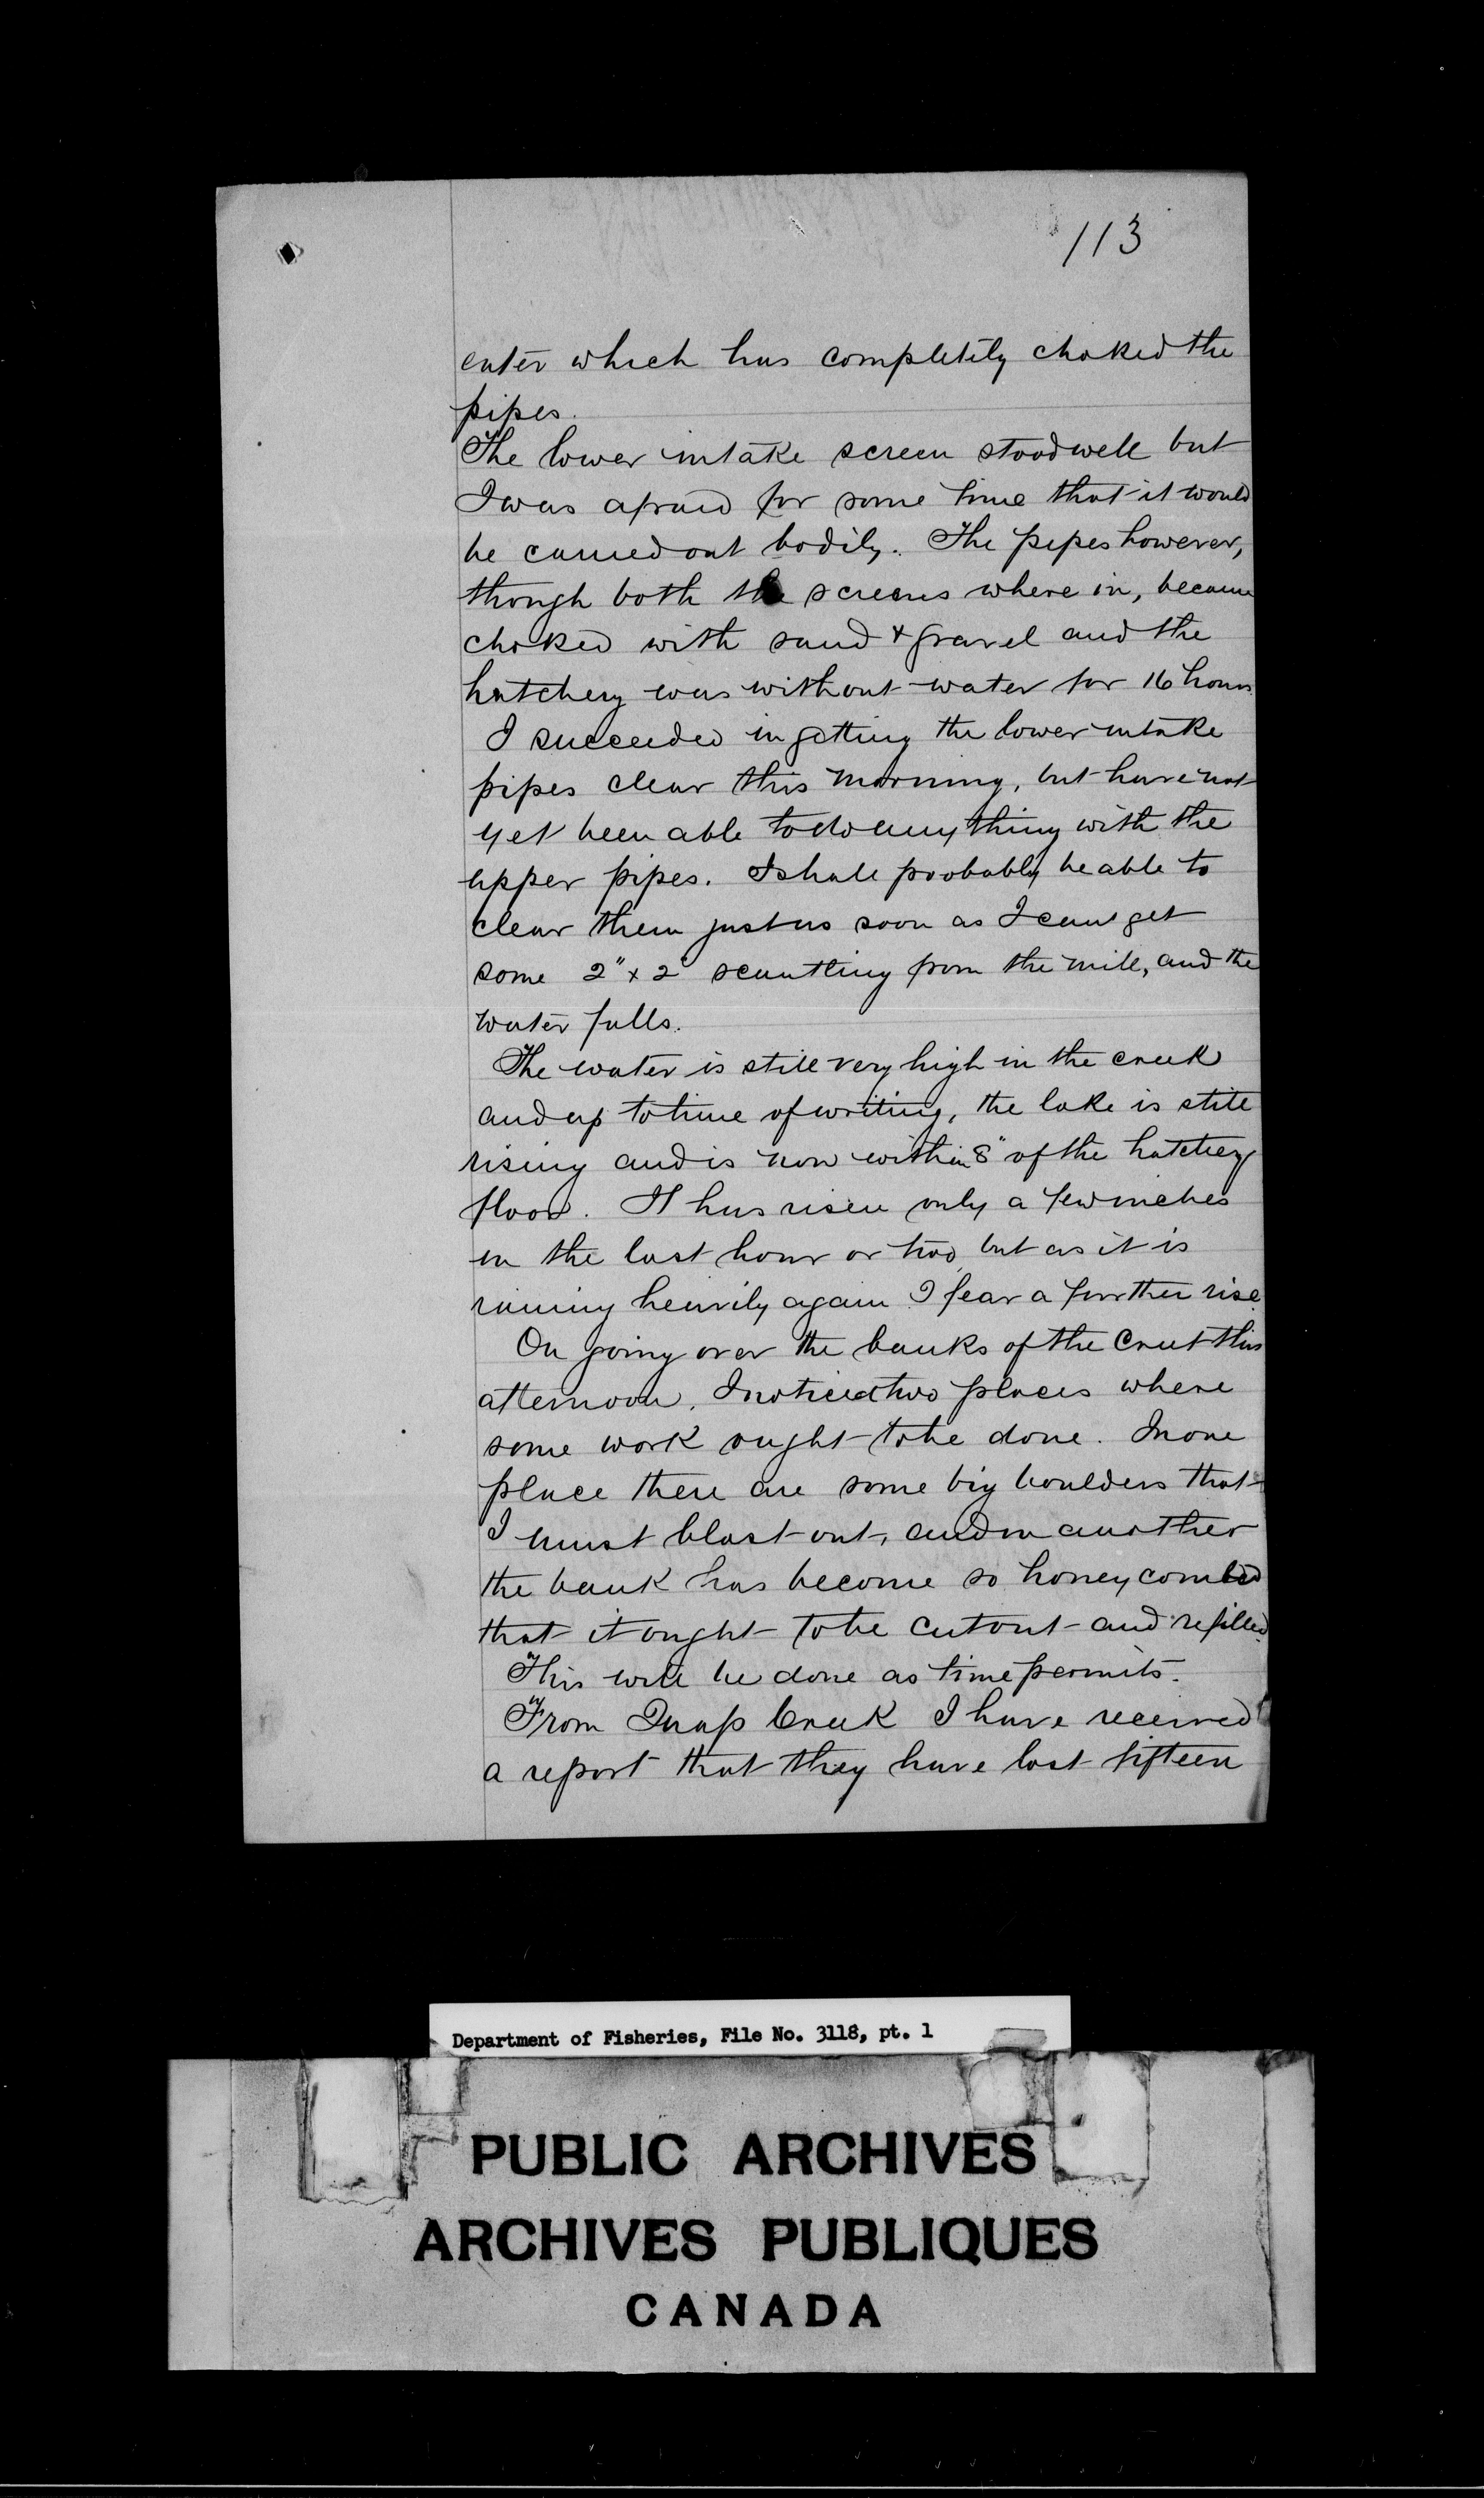 113
enter which has completely choked the
pipes.
The lower intake screen stood well but
I was afraid for some time that it would
be carried out bodily. The pipes however,
though both the screens where in, became
choked with sand & gravel and the
hatchery was without water for 16 hours.
I succeeded in getting the lower intake
pipes clear this morning, but have not
yet been able to do anything with the
upper pipes. I shall probably be able to
clear them just as soon as I can get
some 2" x 2" scantling from the mill, and the
water falls.
The water is still very high in the creek
and up to time of writing, the lake is still
rising and is now within 8" of the hatchery
floor. It has risen only a few inches
in the last hour or two, but as it is
raining heavily again I fear a further rise.
On going over the banks of the Creek this
afternoon, I noticed two places where
some work ought to be done. In one
place there are some big boulders that
I must blast out, and in another
the bank has become so honeycombed
that it ought to be cut out and refilled.
This will be done as time permits.
From Quap Creek I have received
a report that they have lost fifteen
Department of Fisheries, File No. 3118, pt. 1
PUBLIC ARCHIVES
ARCHIVES PUBLIQUES
CANADA